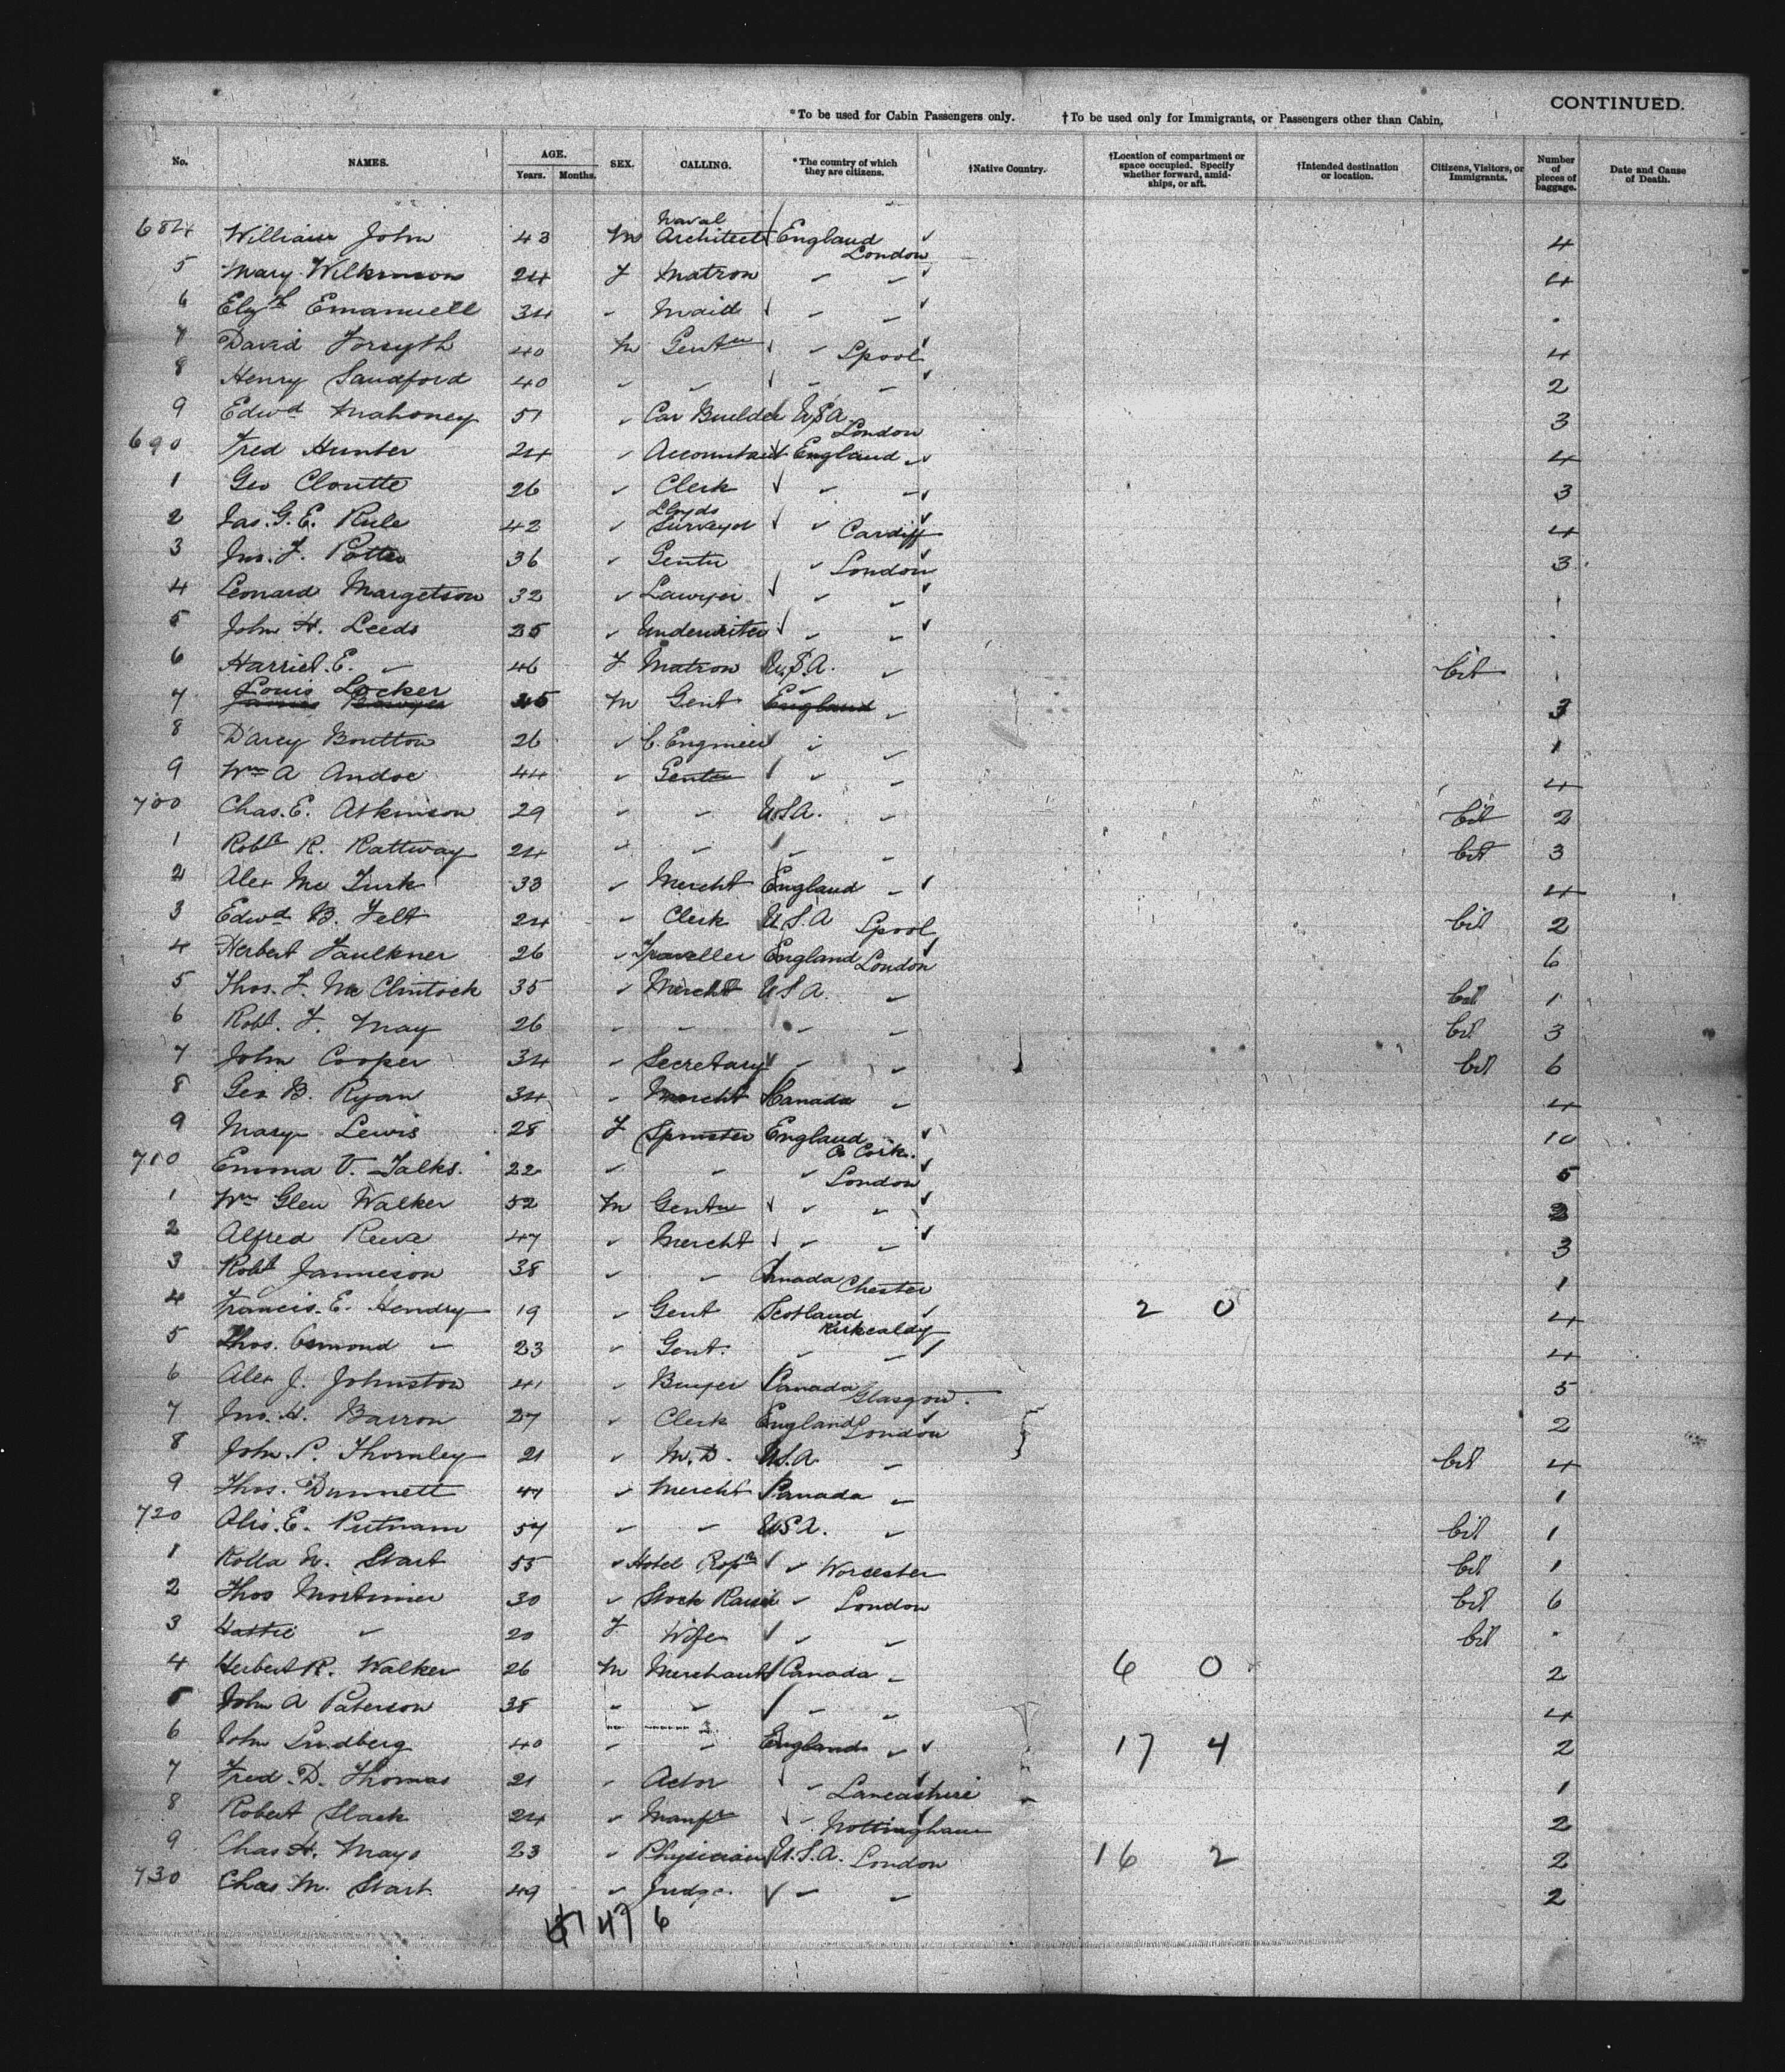 CONTINUED.
*To be used for Cabin Passengers only. †To be used only for Immigrants, or Passengers other than Cabin.
No. NAMES. AGE. Years. Months. SEX. CALLING. *The country of which they are citizens. †Native Country. †Location of compartment or space occupied. Specify whether forward, amidships, or aft. †Intended destination or location. Citizens, Visitors, or Immigrants. Number of pieces of baggage. Date and Cause of Death.
684 William John 43 M Naval Architect England London 4
5 Mary Wilkinson 24 F Matron " " 4
6 Elizth Emanuell 34 " Maid " "
7 David Forsyth 40 M Gentn " Lpool 4
8 Henry Sandford 40 " " " " 2
9 Edwd Mahoney 51 " Car Builder USA London 3
690 Fred Hunter 24 " Accountant England " 4
1 Geo Cloutte 26 " Clerk " " 3
2 Jas. G. E. Rule 42 " Lloyds Surveyor " Cardiff 4
3 Jno. F. Potter 36 " Gentn " London 3
4 Leonard Margetson 32 " Lawyer " " 1
5 John H. Leeds 25 " Underwriter " "
6 Harriet. E. " 46 F Matron U.S.A. " Cit
7 Louis Locker 45 M Gent England " 3
8 D'arcy Boulton 26 " C. Engineer " " 1
9 Wm A Andoe 44 " Gentn " " 4
700 Chas. E. Atkinson 29 " " U.S.A. " Cit 2
1 Robt R. Rattway 24 " " " " Cit 3
2 Alex Mc Turk 33 " Mercht England " 4
3 Edwd B. Felt 24 " Clerk U.S.A Lpool Cit 2
4 Herbert Faulkner 26 " Traveller England London 6
5 Thos. F. Mc Clintock 35 " Mercht U S A. " Cit 1
6 Robt. F. May 26 " " " " Cit 3
7 John Cooper 34 " Secretary " " Cit 6
8 Geo. B. Ryan 34 " Mercht Canada " 4
9 Mary Lewis 28 F Spinster England Co Cork. 10
710 Emma V. Talks. 22 " " " London 5
1 Wm Glen Walker 52 M Gentn " " 3
2 Alfred Reeve 47 " Mercht " " 3
3 Robt Jamieson 38 " " Canada Chester 1
4 Francis. E. Hendry 19 " Gent Scotland Kirkcaldy 2 0 4
5 Thos. Osmond " 23 " Gent. " " 4
6 Alex J. Johnston 41 " Buyer Canada Glasgow. 5
7 Jno. H. Barron 27 " Clerk England London 2
8 John. P. Thornley 21 " M.D. U.S.A. " Cit 4
9 Thos. Dunnett 47 " Mercht Canada " 1
720 E. Putnam 57 " " U.S.A. " Cit 1
1 Rolla N. Start 55 " Hotel Propr " Worcester Cit 1
2 Thos Mortimer 30 " Stock Raiser " London Cit 6
3 Hattie " 20 F Wife " " Cit
4 Herbert R. Walker 26 M Merchant Canada " 6 0 2
5 John A Paterson 38 " " " " 4
6 John Lundberg 40 " " England " 17 4 2
7 Fred. D. Thomas 21 " Actor " Lancashire 1
8 Robert Slack 24 " Manfr " Nottingham 2
9 Chas H. Mayo 23 " Physician U.S.A. London 16 2 2
730 Chas. M. Start 49 " Judge. " " 2
47 6